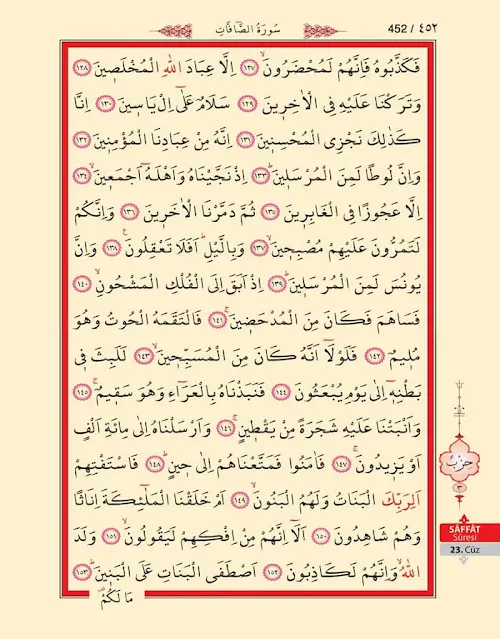 سُورَةُ الصَّٓافَّاتِ
452 / ٤٥٢
فَكَذَّبُوهُ فَاِنَّهُمْ لَمُحْضَرُونَۙ ﴿١٢٧﴾ اِلَّا عِبَادَ اللّٰهِ الْمُخْلَصِينَ ﴿١٢٨﴾
وَتَرَكْنَا عَلَيْهِ فِى الْاٰخِرِينَۙ ﴿١٢٩﴾ سَلَامٌ عَلٰٓى اِلْ يَاسِينَ ﴿١٣٠﴾ اِنَّا
كَذٰلِكَ نَجْزِى الْمُحْسِنِينَ ﴿١٣١﴾ اِنَّهُ مِنْ عِبَادِنَا الْمُؤْمِنِينَ ﴿١٣٢﴾
وَاِنَّ لُوطًا لَمِنَ الْمُرْسَلِينَۜ ﴿١٣٣﴾ اِذْ نَجَّيْنَاهُ وَاَهْلَهُٓ اَجْمَعِينَۙ ﴿١٣٤﴾
اِلَّا عَجُوزًا فِى الْغَابِرِينَ ﴿١٣٥﴾ ثُمَّ دَمَّرْنَا الْاٰخَرِينَ ﴿١٣٦﴾ وَاِنَّكُمْ
لَتَمُرُّونَ عَلَيْهِمْ مُصْبِحِينَۙ ﴿١٣٧﴾ وَبِالَّيْلِۜ اَفَلَا تَعْقِلُونَ۟ ﴿١٣٨﴾ وَاِنَّ
يُونُسَ لَمِنَ الْمُرْسَلِينَۜ ﴿١٣٩﴾ اِذْ اَبَقَ اِلَى الْفُلْكِ الْمَشْحُونِۙ ﴿١٤٠﴾
فَسَاهَمَ فَكَانَ مِنَ الْمُدْحَضِينَۚ ﴿١٤١﴾ فَالْتَقَمَهُ الْحُوتُ وَهُوَ
مُلِيمٌ ﴿١٤٢﴾ فَلَوْلَٓا اَنَّهُ كَانَ مِنَ الْمُسَبِّحِينَۙ ﴿١٤٣﴾ لَلَبِثَ فِى
بَطْنِهِٓ اِلٰى يَوْمِ يُبْعَثُونَۚ ﴿١٤٤﴾ فَنَبَذْنَاهُ بِالْعَرَٓاءِ وَهُوَ سَقِيمٌۚ ﴿١٤٥﴾
وَاَنْبَتْنَا عَلَيْهِ شَجَرَةً مِنْ يَقْطِينٍۚ ﴿١٤٦﴾ وَاَرْسَلْنَاهُ اِلٰى مِائَةِ اَلْفٍ
اَوْ يَزِيدُونَۚ ﴿١٤٧﴾ فَاٰمَنُوا فَمَتَّعْنَاهُمْ اِلٰى حِينٍۜ ﴿١٤٨﴾ فَاسْتَفْتِهِمْ
اَلِرَبِّكَ الْبَنَاتُ وَلَهُمُ الْبَنُونَۙ ﴿١٤٩﴾ اَمْ خَلَقْنَا الْمَلٰٓئِكَةَ اِنَاثًا
وَهُمْ شَاهِدُونَ ﴿١٥٠﴾ اَلَٓا اِنَّهُمْ مِنْ اِفْكِهِمْ لَيَقُولُونَۙ ﴿١٥١﴾ وَلَدَ
اللّٰهُۙ وَاِنَّهُمْ لَكَاذِبُونَ ﴿١٥٢﴾ اَصْطَفَى الْبَنَاتِ عَلَى الْبَنِينَۜ ﴿١٥٣﴾
مَا لَكُمْ۠
حِزْبٌ
٣
SÂFFÂT
Sûresi
23. Cüz